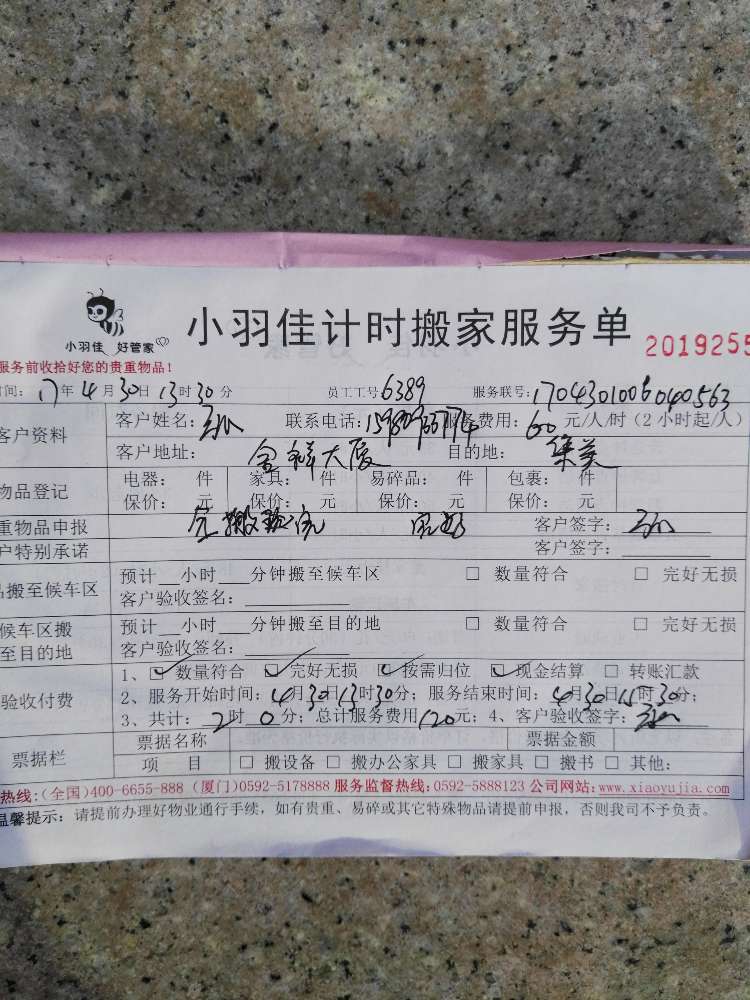 小羽佳 好管家
小羽佳计时搬家服务单
2019255
服务前收拾好您的贵重物品!
时间: 17年4月30日13时30分 员工工号6389 服务联号:1704301006040563
客户资料
客户姓名: 联系电话: 服务费用: 60 元/人/时(2小时起/人)
客户地址: 金祥大厦 目的地: 集美
物品登记
电器: 件 家具: 件 易碎品: 件 包裹: 件
保价: 元 保价: 元 保价: 元 保价: 元
重物品申报 客户签字:
户特别承诺 客户签字:
搬至候车区
预计___小时___分钟搬至候车区 □ 数量符合 □ 完好无损
客户验收签名:
候车区搬
至目的地
预计___小时___分钟搬至目的地 □ 数量符合 □ 完好无损
客户验收签名:
验收付费
1、☑数量符合 ☑完好无损 ☑按需归位 ☑现金结算 □ 转账汇款
2、服务开始时间:4月30日13时30分;服务结束时间:4月30日15时30分;
3、共计: 2时 0分;总计服务费用120元;4、客户验收签字:
票据栏
票据名称 票据金额
项 目 □ 搬设备 □ 搬办公家具 □ 搬家具 □ 搬书 □ 其他:
热线:(全国)400-6655-888 (厦门)0592-5178888 服务监督热线:0592-5888123 公司网站:www.xiaoyujia.com
温馨提示: 请提前办理好物业通行手续,如有贵重、易碎或其它特殊物品请提前申报,否则我司不予负责。